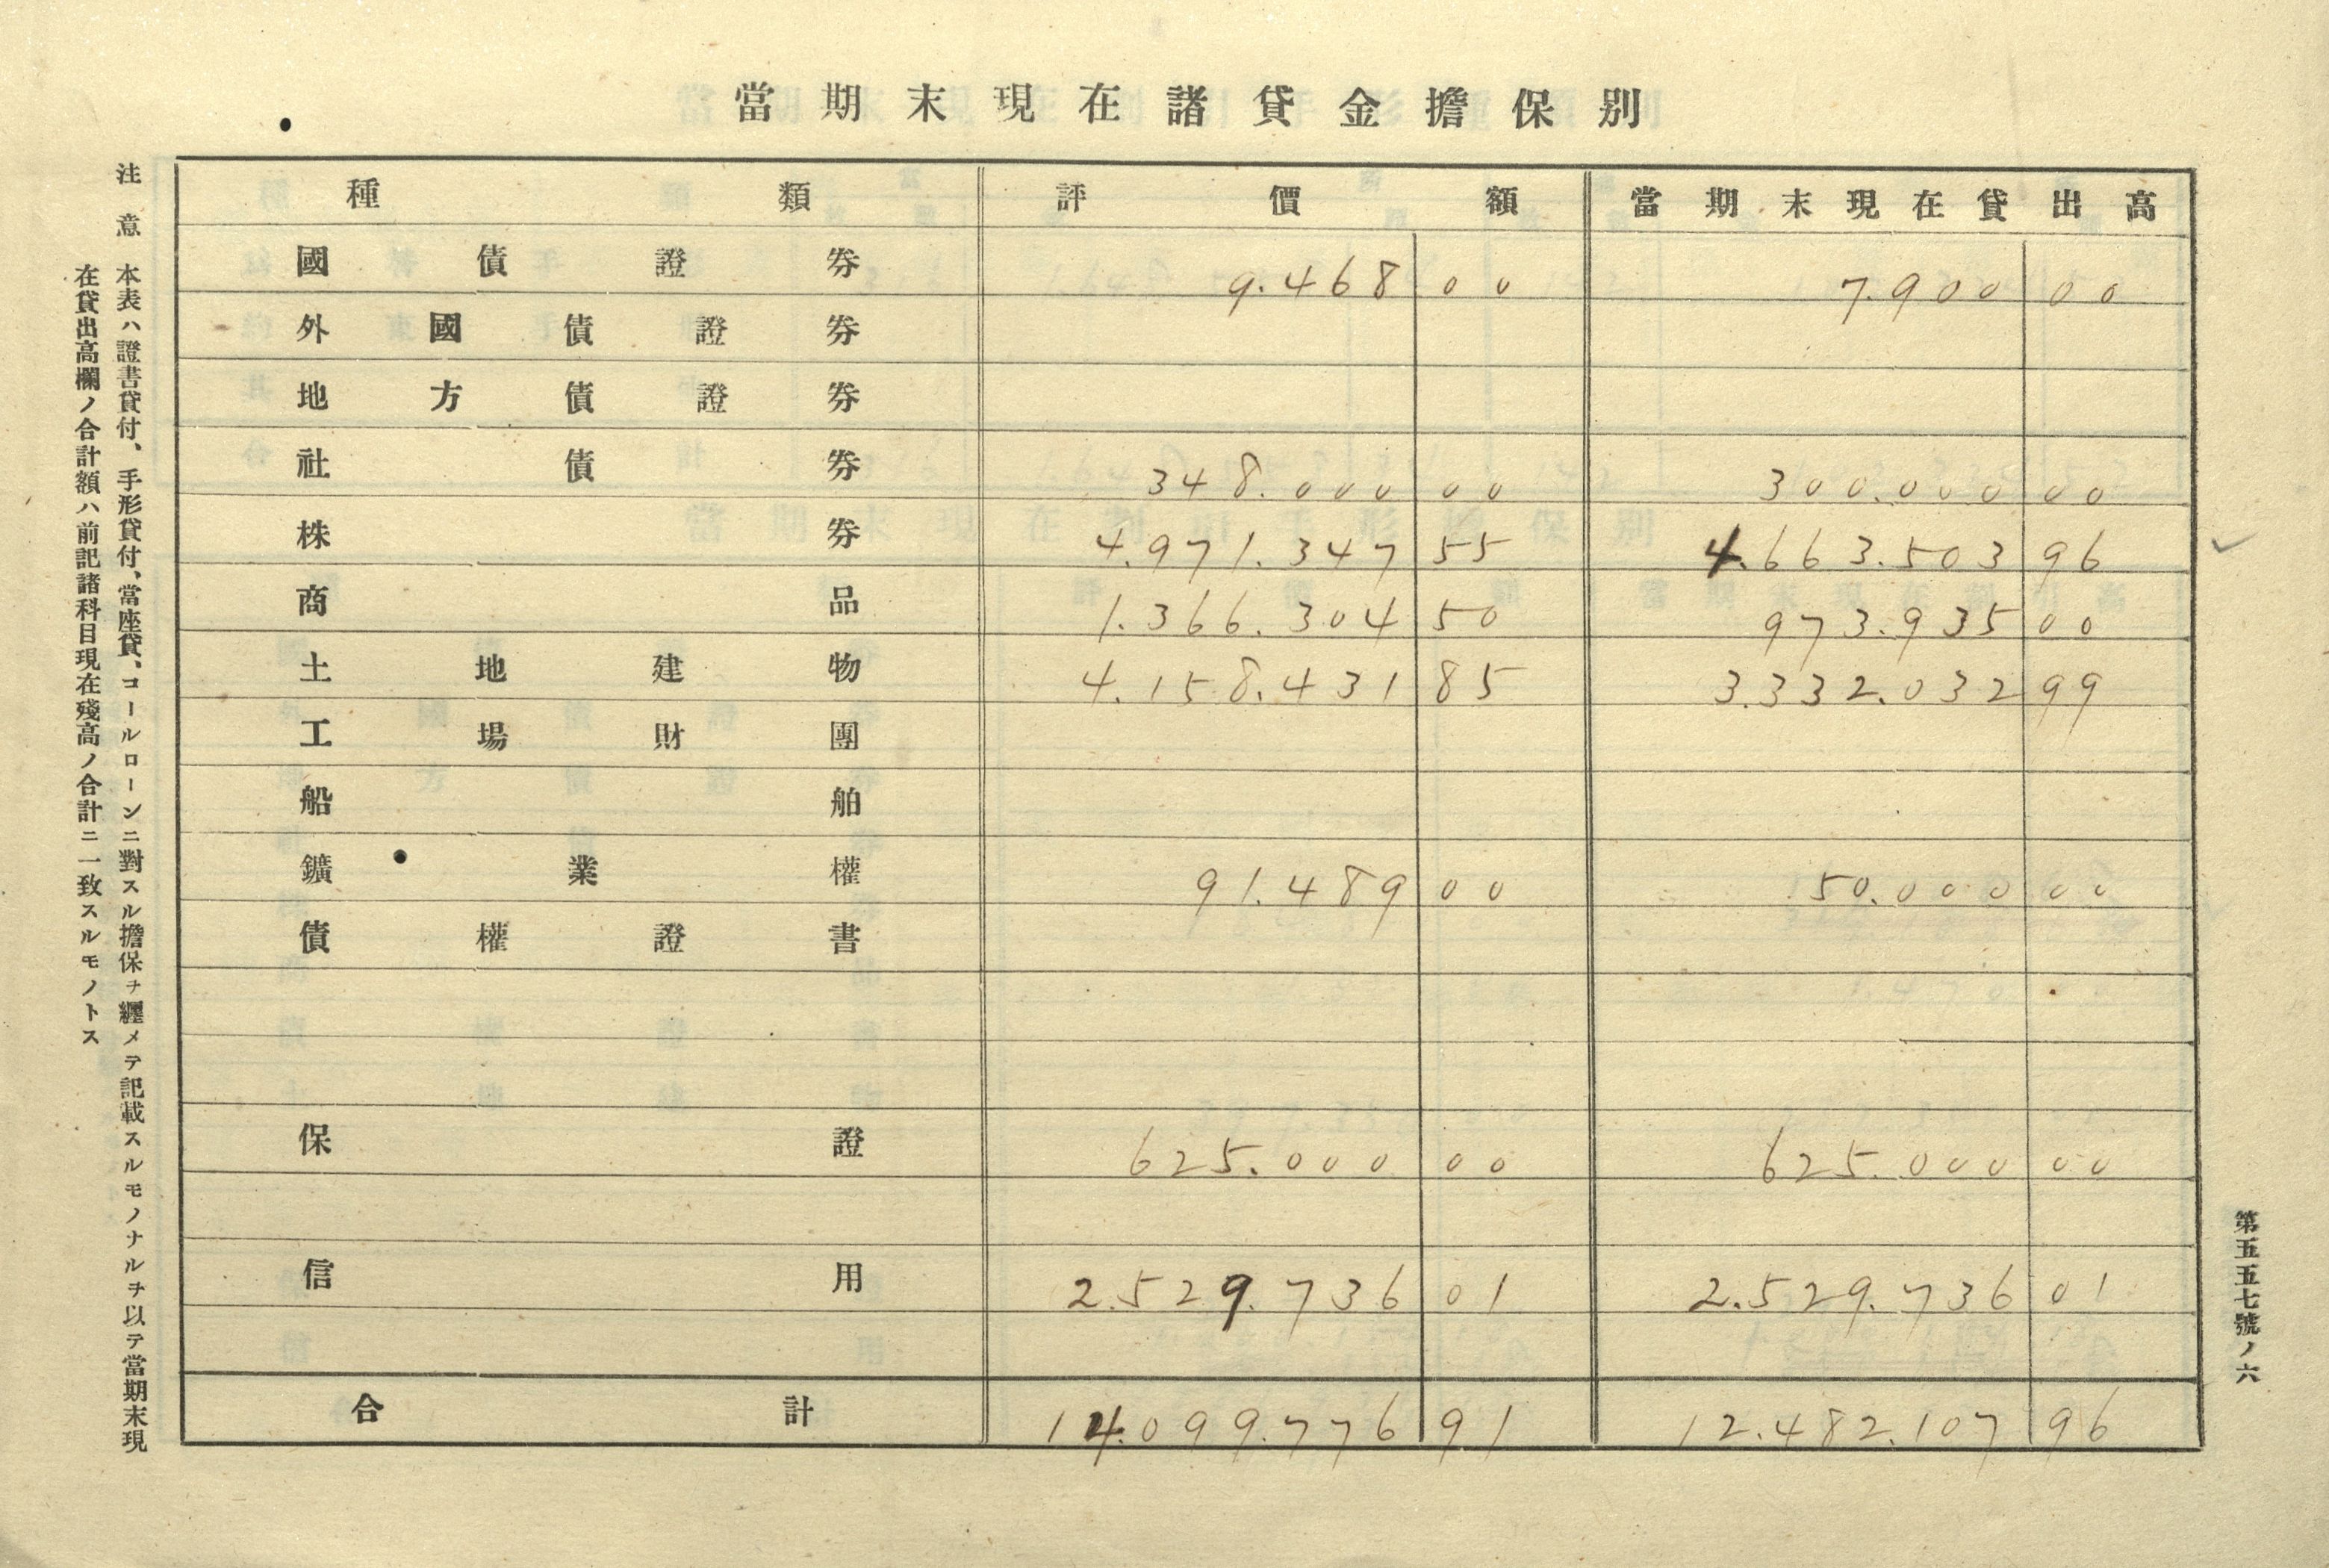 當期末現在諸貸金擔保別
種類 評價額 當期末現在貸出高
國債證券 9.468 00 7.900 00
外國債證券
地方債證券
社債券 348.000 00 300.000 00
株券 4.971.347 55 4.663.503 96
商品 1.366.304 50 973.935 00
土地建物 4.158.431 85 3.332.032 99
工場財團
船舶
鑛業權 91.489 00 50.000 00
債權證書
保證 625.000 00 625.000 00
信用 2.529.736 01 2.529.736 01
合計 14.099.776 91 12.482.107 96
第五五七號ノ六
注意 本表ハ證書貸付、手形貸付、當座貸、コールローンニ對スル擔保ヲ纒メテ記載スルモノナルヲ以テ當期末現
在貸出高欄ノ合計額ハ前記諸科目現在殘高ノ合計ニ一致スルモノトス